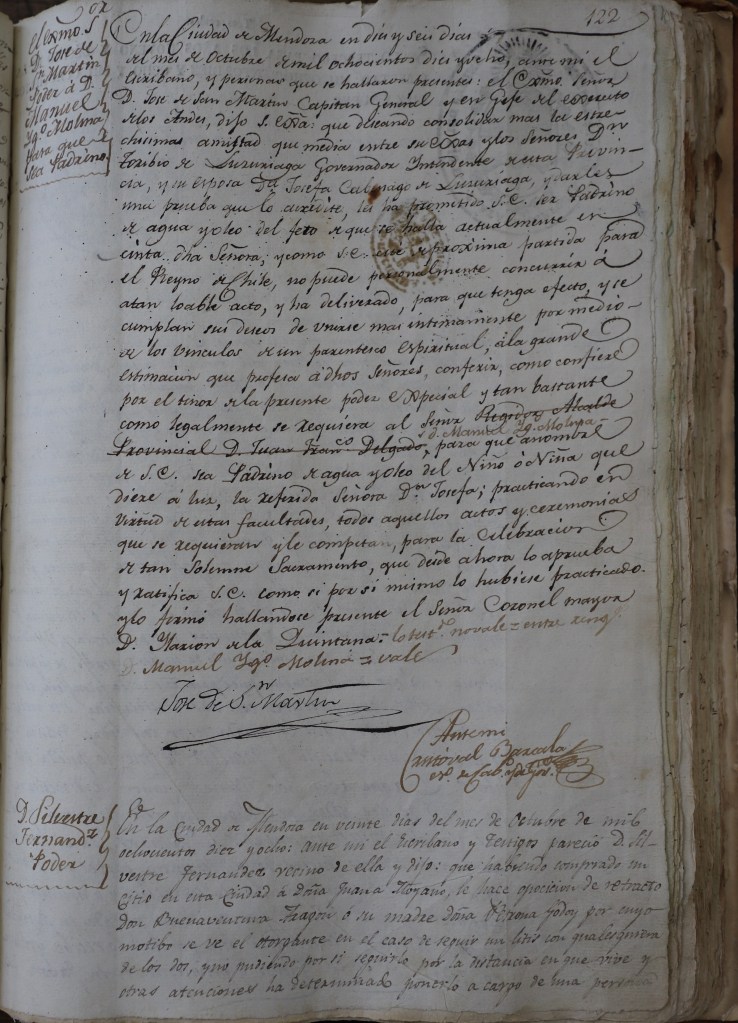 122
El exmo. S.or
D. Jose de
Sn. Martin
Poder â D.
Manuel
Ygo. Molina
para que
sea Padrino
En la Ciudad de Mendoza en diez y seis dias
del mes de Octubre de mil ochocientos diez y ocho, ante mi el
Escribano, y personas que se hallaron presentes: el Exmo. Señor
D. Jose de San Martin Capitan General y en Gefe del Exercito
de los Andes, dijo S. Exa: que deseando consolidar mas la estre-
chisima amistad que media entre su Exa. y los Señores Dn.
Toribio de Luzuriaga Governador Intendente de esta Provin-
cia, y su esposa Da. Josefa de Luzuriaga, y darles
una prueba que lo acredite, les ha prometido S.E. ser Padrino
de agua y oleo del feto de que se halla actualmente en
cinta dha Señora; y como S.E. proxima partida para
el Reyno de Chile, no puede personalmente concurrir â
atan loable acto, y ha deliverado, para que tenga efecto, y se
cumplan sus deseos de unirse mas intimamente por medio
de los vinculos de un parentesco espiritual, â la grande
estimacion que profesa â dhos Señores, conferir, como confiere
por el tenor de la presente poder especial y tan bastante
como legalmente se requiera al Señor Regidor Alcalde
s D. Manuel Ygo. Molina
Provincial D. Juan Franco. Delgado, para que anombre
de S.E. sea Padrino de agua y oleo del Niño ô Niña que
diere â luz, la referida Señora Da. Josefa; practicando en
virtud de estas facultades, todos aquellos actos y ceremonias
que se requieran y le competan, para la Celebracion
de tan Solemne Sacramento, que desde ahora lo aprueba
y ratifica S.E. como si por si mimo lo hubiese practicado.
y lo firmó hallandose presente el Señor Coronel mayor
D. Ylarion de la Quintana = lo test.do no vale = entre rengs.
D. Manuel Ygo. Molina = vale
Jose de Sn. Martin
Ante mi
Cristoval Barcala
D. Silvestre
Fernandz.
Poder
En la Ciudad de Mendoza en veinte dias del mes de Octubre de mil
ochocientos diez y ocho: ante mi el Escribano y Testigos pareció D. Sil-
vestre Fernandez vecino de ella y dijo: que habiendo comprado un
citio en esta Ciudad â Doña Juana Moyano, le hace oposicion de retracto
Don Buenaventura Aragon o su madre Doña Godoy por cuyo
motibo se ve el otorgante en el caso de seguir un litis con qualesquiera
de los dos, y no pudiendo por si seguirle por la distancia en que vive y
otras atenciones ha determinado ponerlo a cargo de una persona